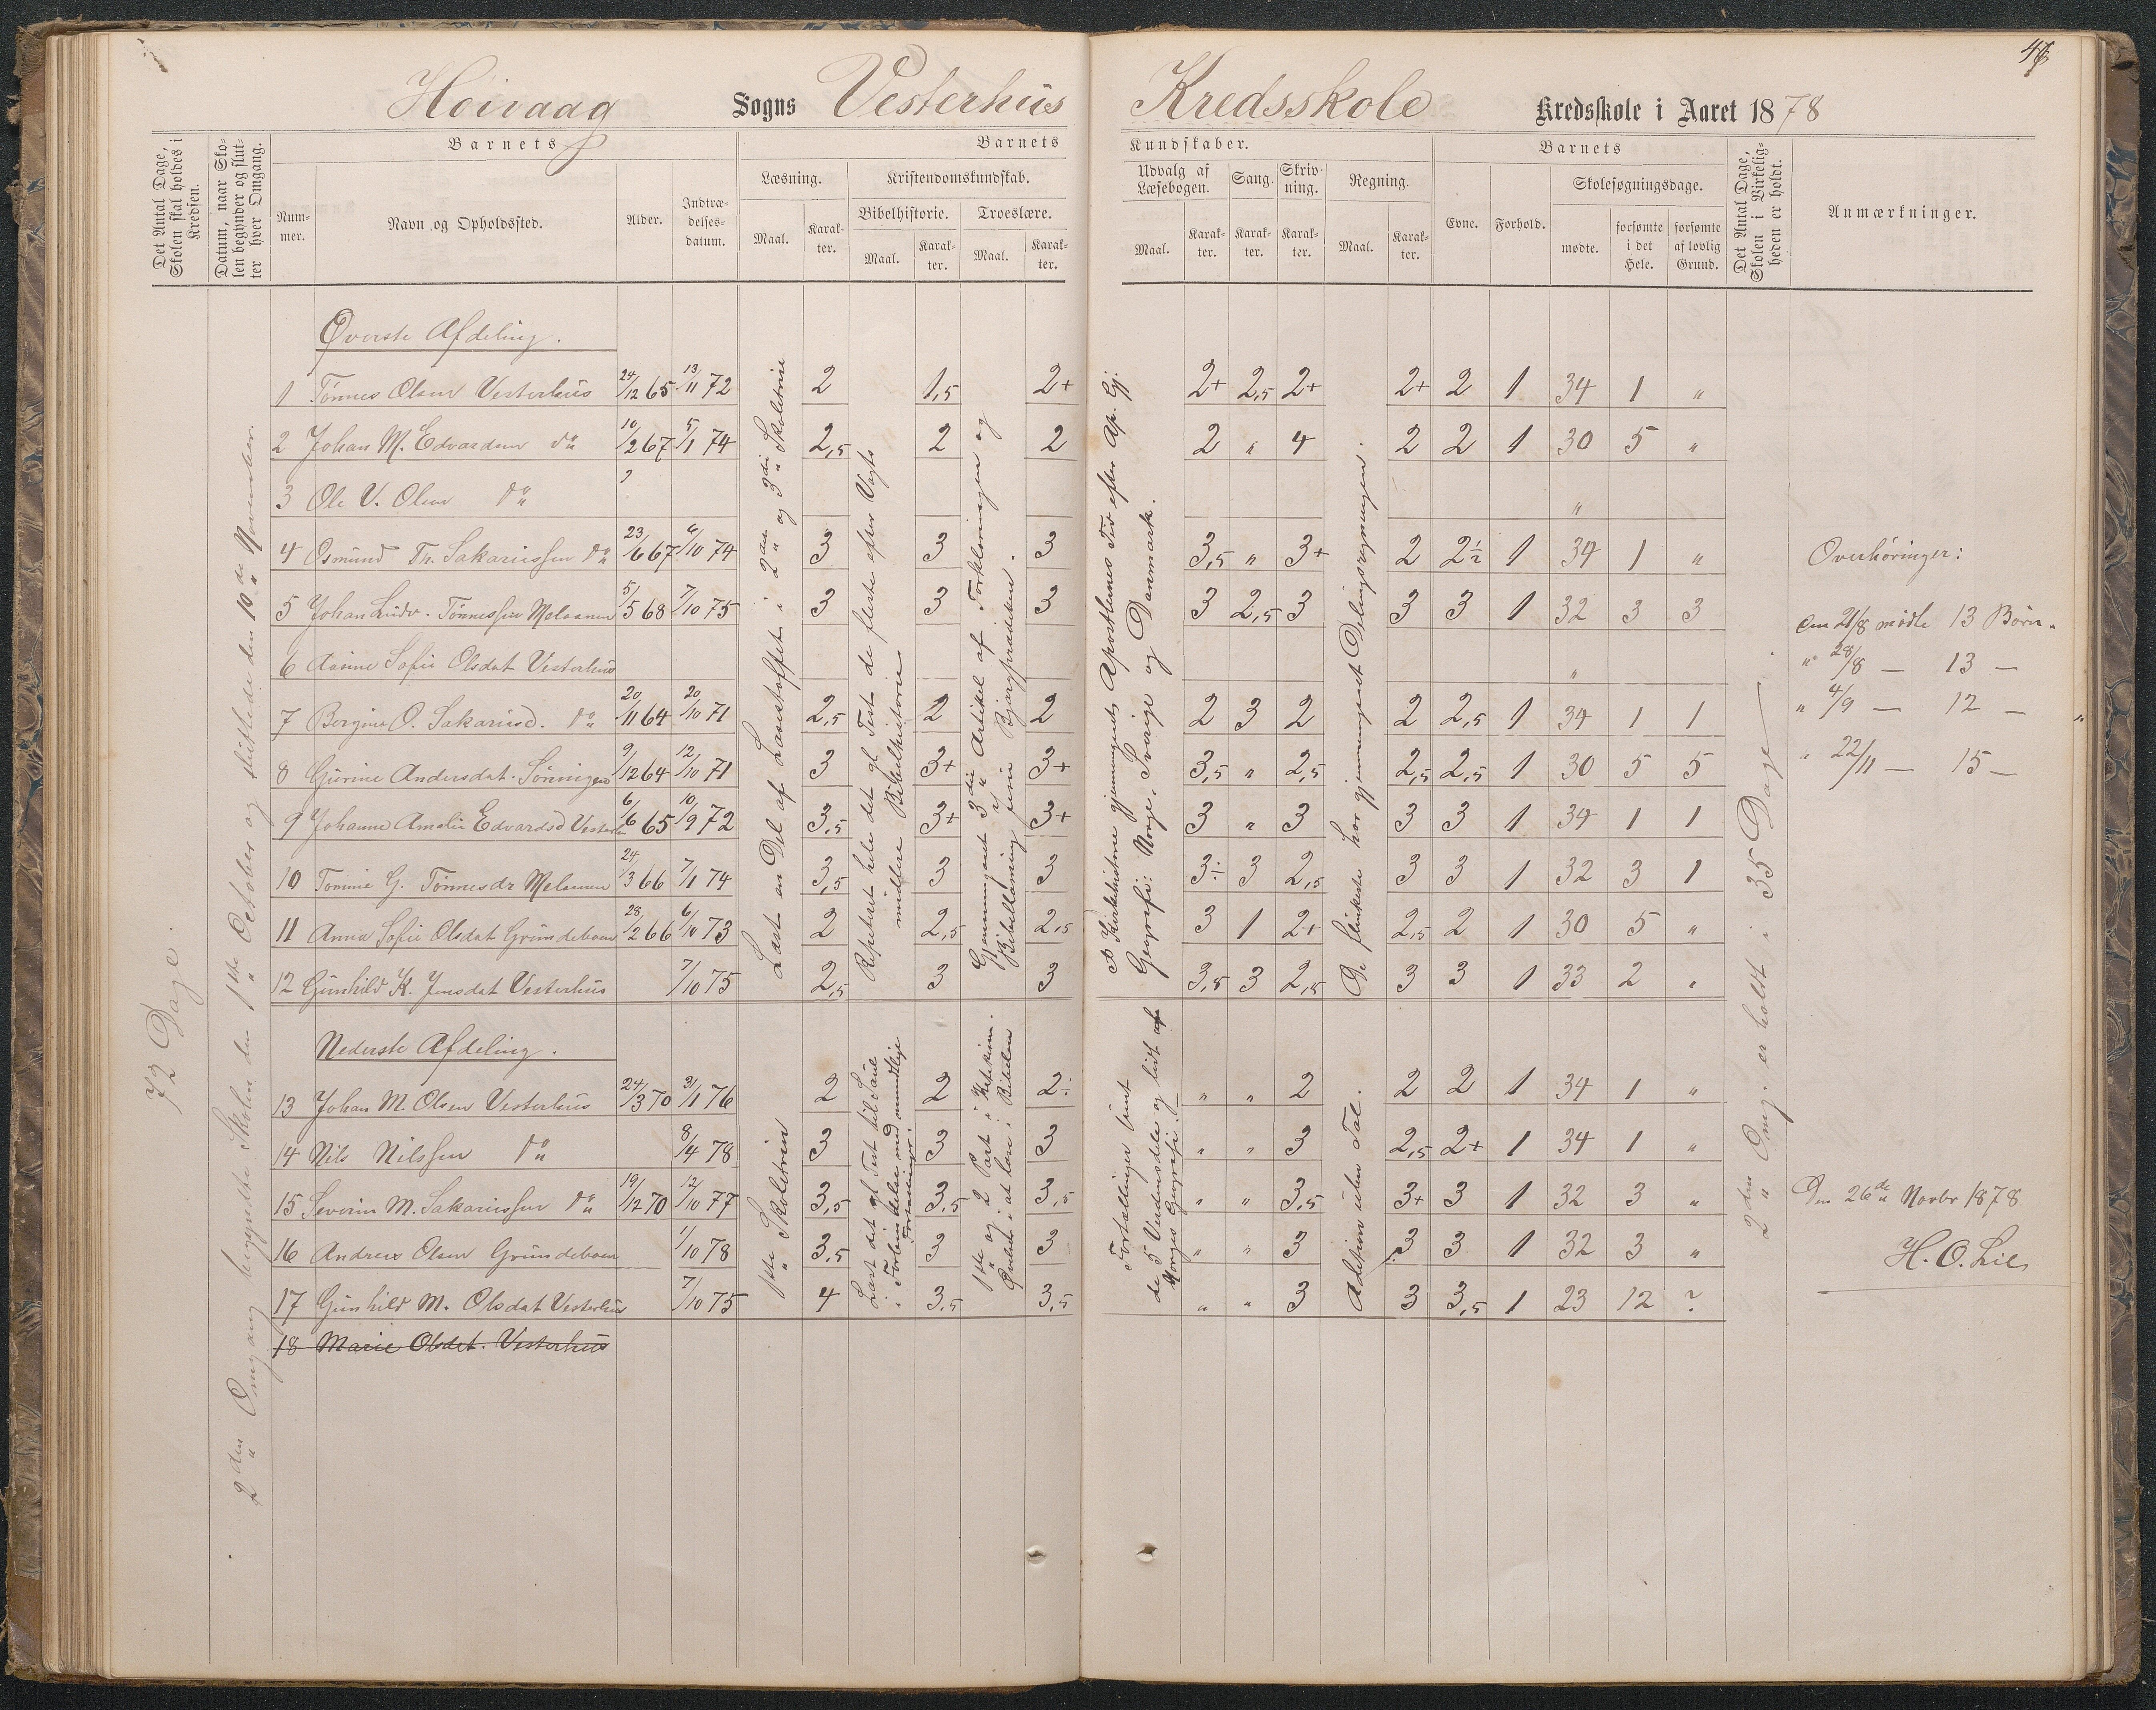 46
Høivaag Sogns Vesterhus Kredsskole Kredsskole i Aaret 1878
Det Antal Dage, Skolen skal holdes i Kredsen.
Datum, naar Skolen begynder og slutter hver Omgang.
Barnets
Nummer.
Navn og Opholdssted.
Alder.
Indtrædelsesdatum.
Barnets Kundskaber.
Læsning.
Maal.
Karakter.
Kristendomskundskab.
Bibelhistorie.
Maal.
Karakter.
Troeslære.
Maal.
Karakter.
Udvalg af Læsebogen.
Maal.
Karakter.
Sang.
Karakter.
Skrivning.
Karakter.
Regning.
Maal.
Karakter.
Barnets
Evne.
Forhold.
Skolesøgningsdage.
mødte.
forsømte i det Hele.
forsømte af lovlig Grund.
Det Antal Dage, Skolen i Virkeligheden er holdt.
Anmærkninger.
72 Dage.
2den Omgang begyndte Skolen den 1ste October og sluttede den 10de November.
Øverste Afdeling.
1 Tønnes Olsen Vesterhus 24/12 65 13/11 72 2 1,5 2+ 2+ 2,5 2+ 2+ 2 1 34 1 "
2 Johan M. Edvardsen do 10/2 67 5/1 74 2,5 2 2 2 " 4 2 2 1 30 5 "
3 Ole V. Olsen do "
4 Osmund Th. Sakariassen do 23/6 67 6/10 74 3 3 3 3,5 " 3+ 2 2½ 1 34 1 "
5 Johan Ludv. Tønnessen 5/5 68 7/10 75 3 3 3 3 2,5 3 3 3 1 32 3 3
6 Aasine Sofie Olsdat Vesterhus "
7 Bergine O. Sakariasd. do 20/11 64 20/10 71 2,5 2 2 2 3 2 2 2,5 1 34 1 1
8 Gurine Andersdat. 9/12 64 12/10 71 3 3+ 3+ 3,5 " 2,5 2,5 2,5 1 30 5 5
9 Johanne Amalie Edvardsd 6/6 65 10/9 72 3,5 3+ 3+ 3 " 3 3 3 1 34 1 1
10 Tomine G. Tønnesdr 24/3 66 7/1 74 3,5 3 3 3÷ 3 2,5 3 3 1 32 3 1
11 Anna Sofie Olsdat 28/2 66 6/10 73 2 2,5 2,5 3 1 2+ 2,5 2 1 30 5 "
12 Gunhild K. Jensdat Vesterhus 7/10 75 2,5 3 3 3,5 3 2,5 3 3 1 33 2 "
Læst en Del af Læsestoffet i 2den og 3die Skoletrin
Repeteret hele det gl Test de fleste efter Vogts midlere Bibelhistorie
Gjennemgaaet 3die Artikel af Forklaringen og Bibellæsning
Kirkehistorie gjennemgaaet Apostlernes Tid efter Ap. Gj.
Geografi: Norge, Sverige og Danmark.
De flinkeste har gjennemgaaet Delingsregningen.
Nederste Afdeling.
13 Johan M. Olsen Vesterhus 24/3 70 31/1 76 2 2 2÷ " " 2 2 2 1 34 1 "
14 Nils Nilssen do 8/4 78 3 3 3 " " 3 2,5 2+ 1 34 1 "
15 Severin M. Sakariassen do 19/12 70 12/10 77 3,5 3,5 3,5 " " 3,5 3+ 3 1 32 3 "
16 Andreas Olsen 1/10 78 3,5 3 3 " " 3 3 3 1 32 3 "
17 Gunhild M. Olsdat Vesterhus 7/10 75 4 3,5 3,5 " " 3 3 3,5 1 23 12 ?
18 Marie Olsdat. Vesterhus
1ste Skoletrin
Læst det gl Test til Saul i Forbindelse med mundlige Fortællinger.
1ste og i 2 Part i Katekism. Øvelse i at læse i Bibelen
Fortællinger samt de 5 Verdensdele og lidt af Norges Geografi.
Adition uden Tal.
2den Omg. er holdt i 35 Dage
Overhøringer:
den 21/8 mødte 13 Børn.
" 28/8 — 13 —
" 4/9 — 12 —
" 22/11 — 15 —
Den 26de Novbr 1878
H. O. Lie